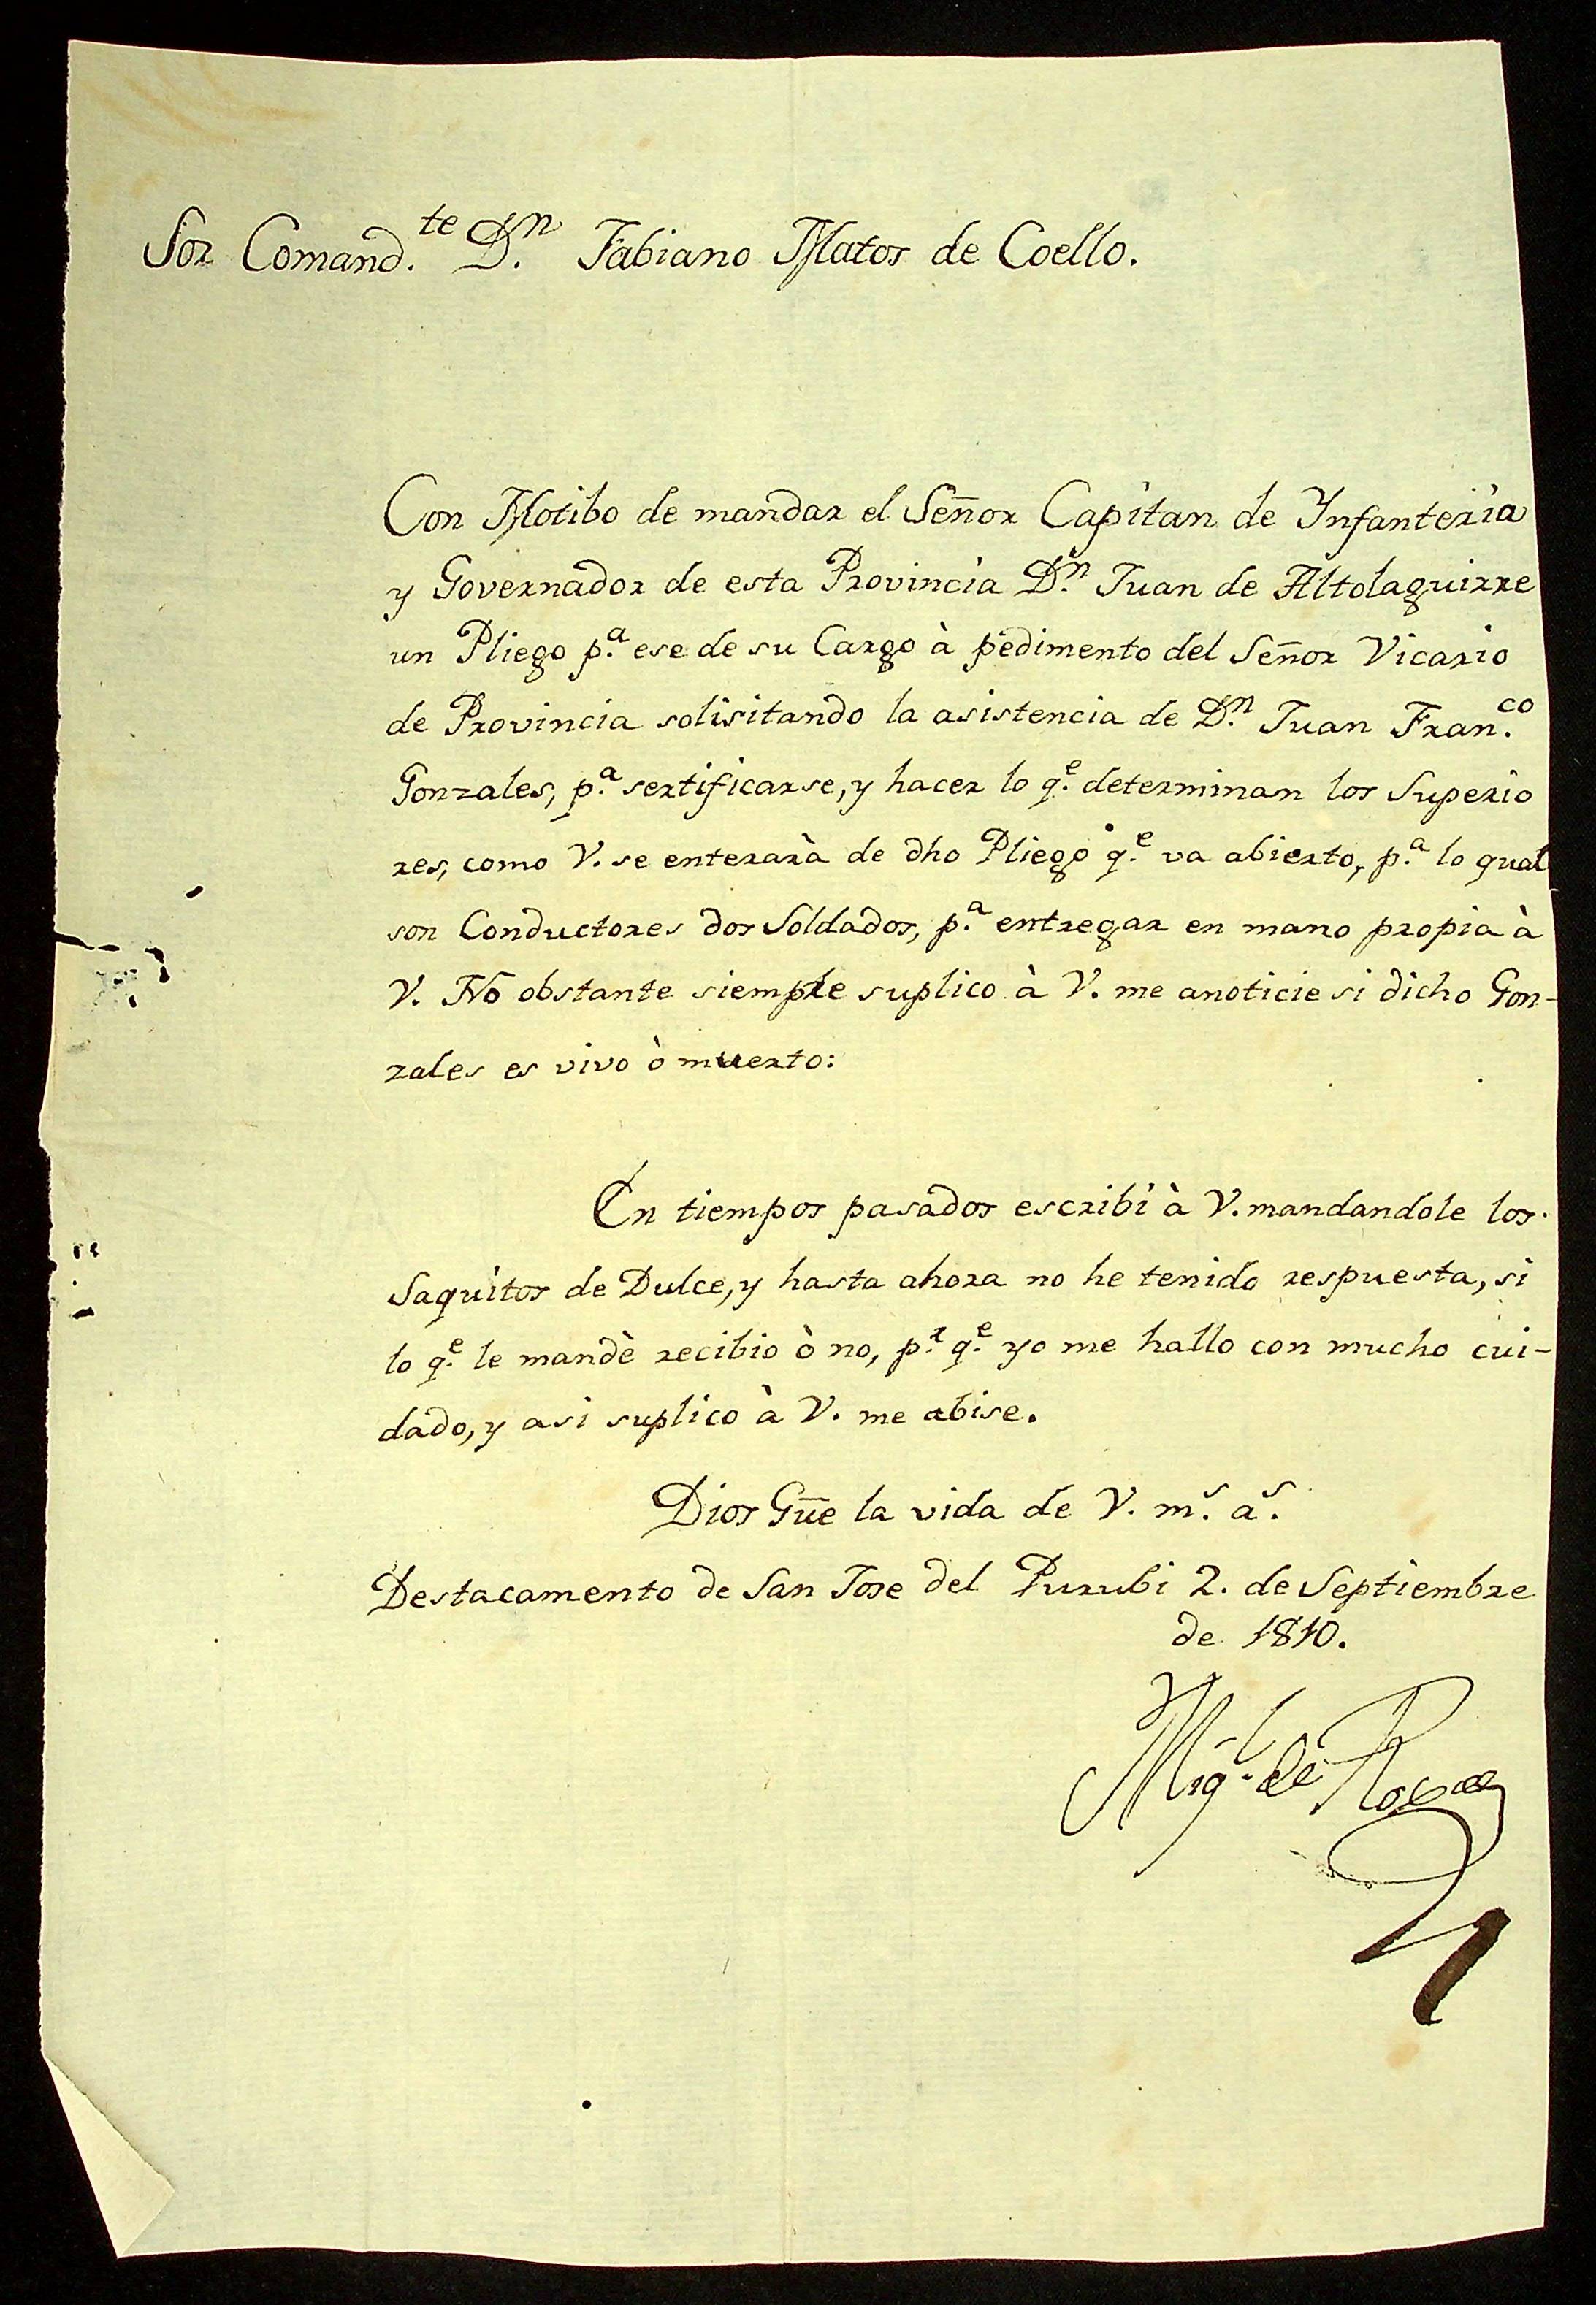 Sor Comand.te D.n Fabiano Matos de Coello.
Con Motibo de mandar el Señor Capitan de Ynfanteria
y Governador de esta Provincia D.n Juan de Altolaguirre
un Pliego p.a ese de su Cargo à pedimento del Señor Vicario
de Provincia solisitando la asistencia de D.n Juan Fran.co
Gonzales, p.a sertificarse, y hacer lo q.e determinan los Superio
res, como V. se enterarà de dho Pliego q.e va abierto, p.a lo qual
son Conductores dos Soldados, p.a entregar en mano propia à
V. No obstante siempre suplico à V. me anoticie si dicho Gon-
zales es vivo ò muerto:
En tiempos pasados escribì à V. mandandole los
Saquitos de Dulce, y hasta ahora no he tenido respuesta, si
lo q.e le mandè recibio ò no, p.r q.e yo me hallo con mucho cui-
dado, y asi suplico à V. me abise.
Dios Gūe la vida de V. m.s a.s
Destacamento de San Jose del Purubi 2. de Septiembre
de 1810.
Mig.l de